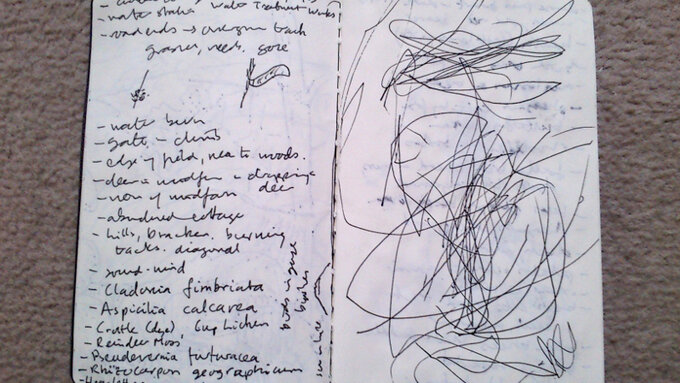 - water station water Treatment Works
- road ends → overgrown track
grasses, reeds, gorse
- water burn
- gate - climb
- edge of field, near to woods.
- deer - droppings
deer
- abandoned cottage
- hills, bracken, burning
tracks. diagonal
- sound - wind
- Cladonia fimbriata
- Aspicilia calcarea
- Crottle (dye), Cup Lichen
- Reindeer Moss,
- Pseudevernia furfuracea
- Rhizocarpon geographicum
birds in gorse
bushes